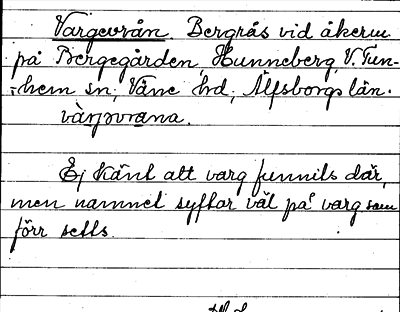 Vargevrån. Bergrås vid åkern
på Bergegården, Hunneberg, V. Tun-
hem sn; Väne hd; Älfsborgs län.
Ej känt att varg funnits där,
men namnet syftar väl på varg som
förr setts.